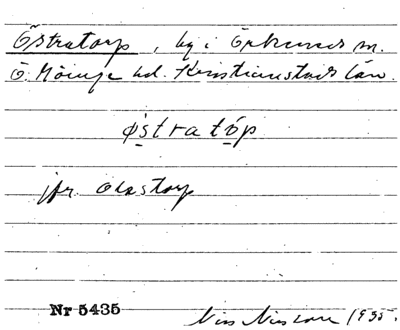 Östratorp, by i Örkeneds sn.
Ö. Göinge hd. Kristianstads län.
østratóp
jfr. Olastorp
Nr 5435
Nils Nilsson 1935.